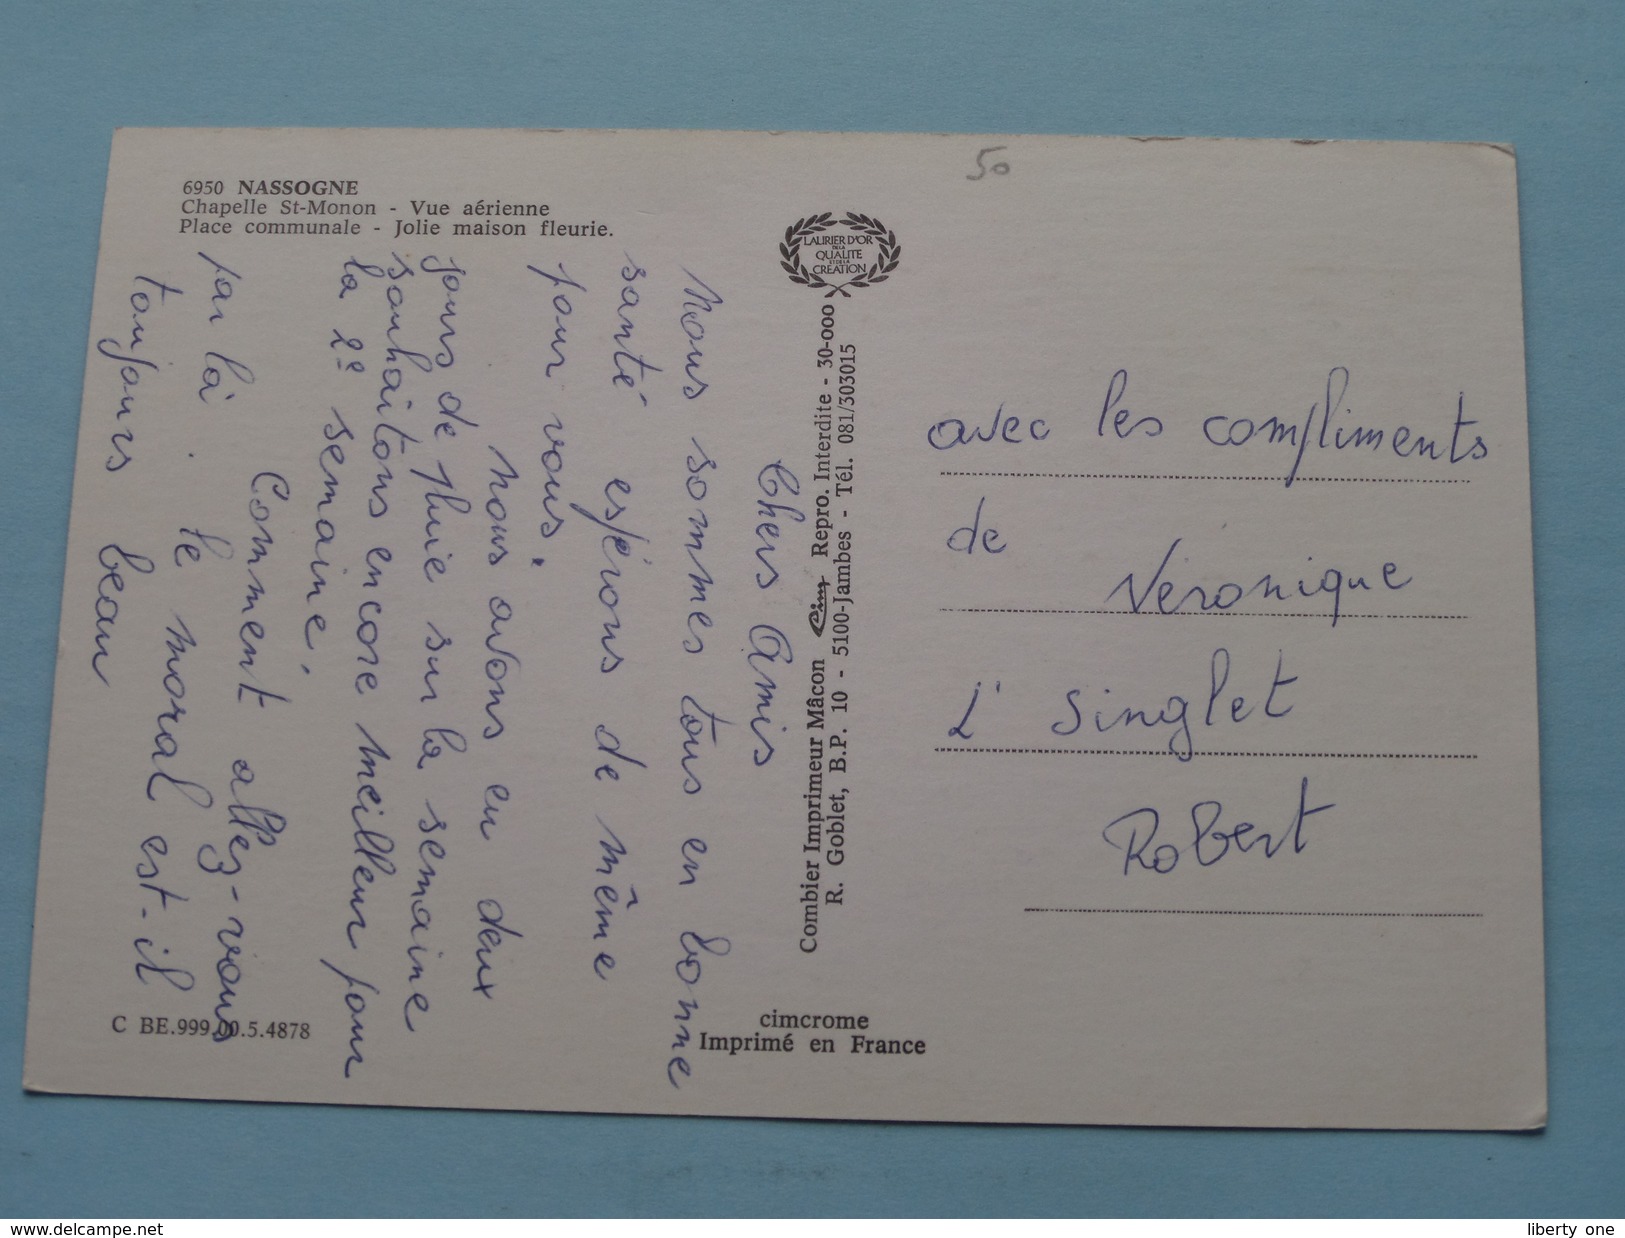 50
6950 NASSOGNE
Chapelle St-Monon - Vue aérienne
Place communale - Jolie maison fleurie.
Chers Amis
Nous sommes tous en bonne
santé espérons de même
pour vous.
Nous avons eu deux
jours de pluie sur la semaine
souhaitons encore meilleur pour
la 2e semaine.
Comment allez-vous
par là. le moral est-il
toujours beau
LAURIER D'OR
DE LA
QUALITE
ET DE LA
CREATION
Combier Imprimeur Mâcon Cim Repro. Interdite - 30-000
R. Goblet, B.P. 10 - 5100-Jambes - Tél. 081/303015
avec les compliments
de Veronique
L' Singlet
Robert
C BE.999.00.5.4878
cimcrome
Imprimé en France
www.delcampe.net
liberty one